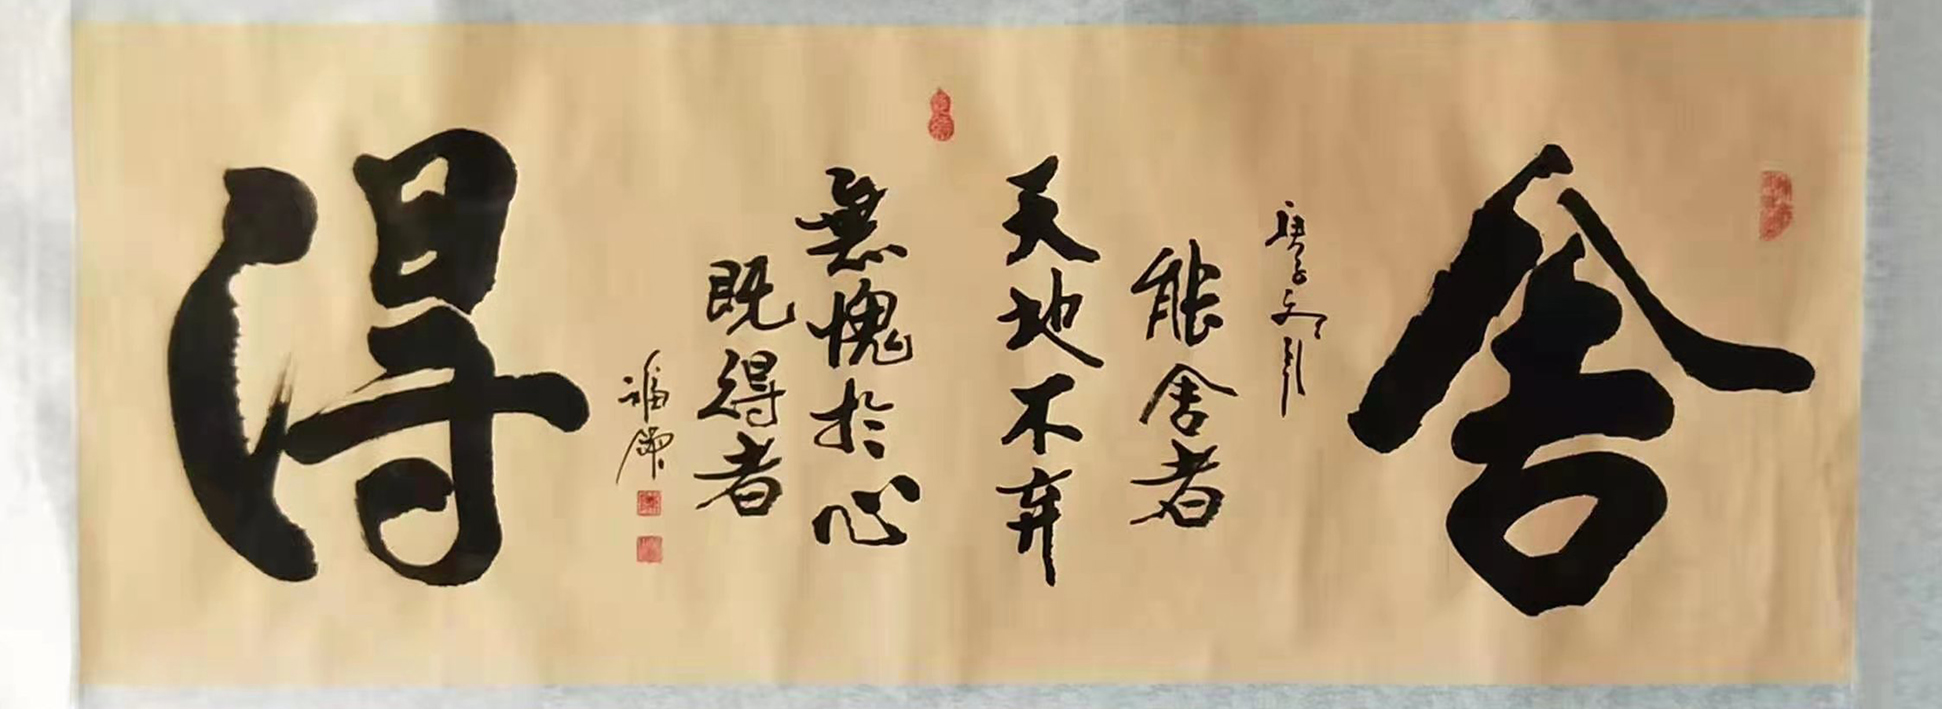 舍
能舍者
天地不弃
無愧於心
既得者
得